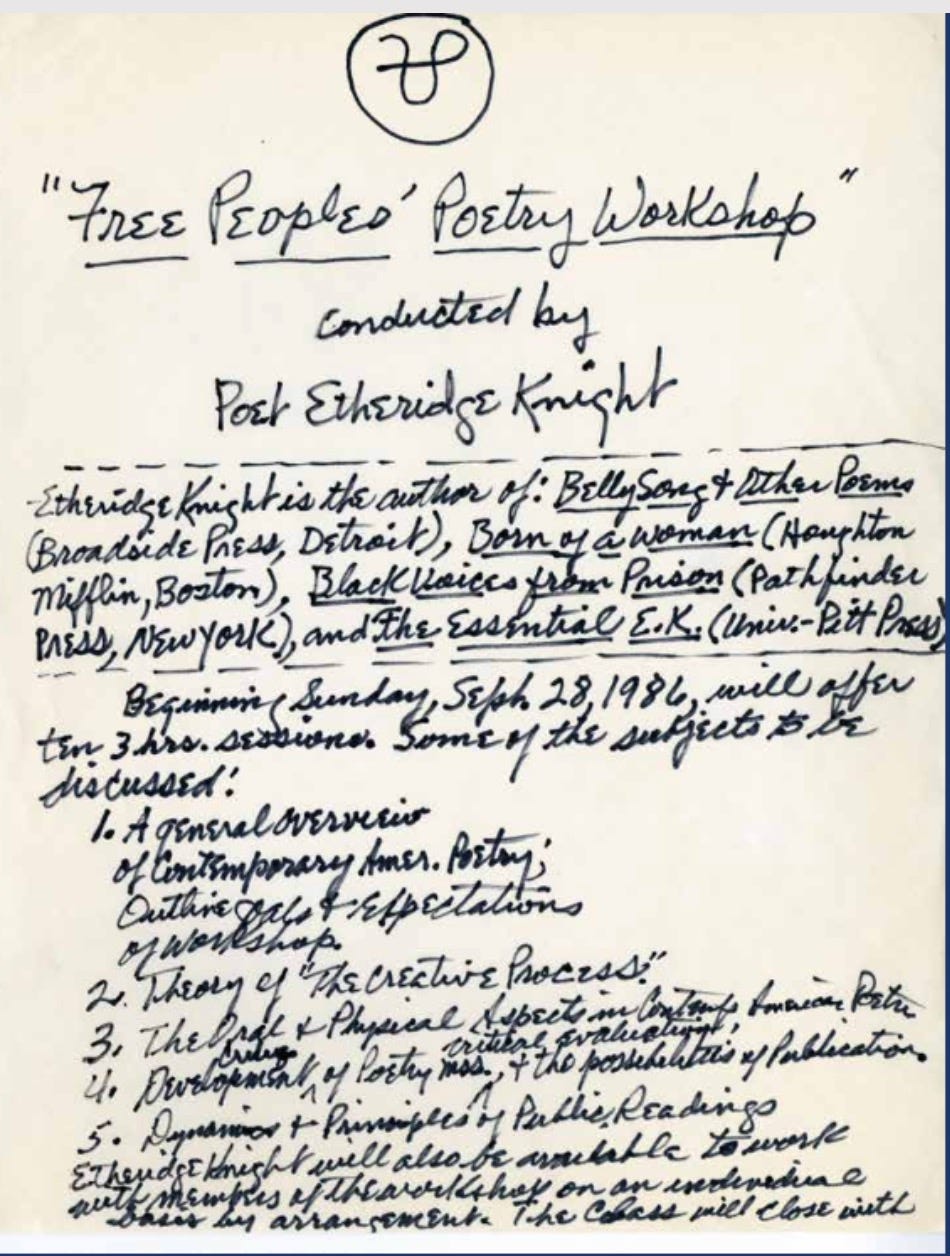 "Free Peoples' Poetry Workshop"
conducted by
Poet Etheridge Knight
Etheridge Knight is the author of: Belly Song & Other Poems
(Broadside Press, Detroit), Born of a woman (Houghton
Mifflin, Boston), Black Voices from Prison (Pathfinder
Press, New York), and The Essential E.K. (Univ.-Pitt Press)
Beginning Sunday, Sept. 28, 1986, will offer
ten 3 hrs. sessions. Some of the subjects to be
discussed:
1. A general overview
of Contemporary Amer. Poetry;
Outline goals & Expectations
of workshop.
2. Theory of "The Creative Process."
3. The Oral & Physical Aspects in Contemp American Poetr
critical evaluations,
4. Development of Poetry mss., & the possibilities of Publication.
5. Dynamics & Principles of Public Readings
Etheridge Knight will also be available to work
with members of the workshop on an individual
basis by arrangement. The Class will close with